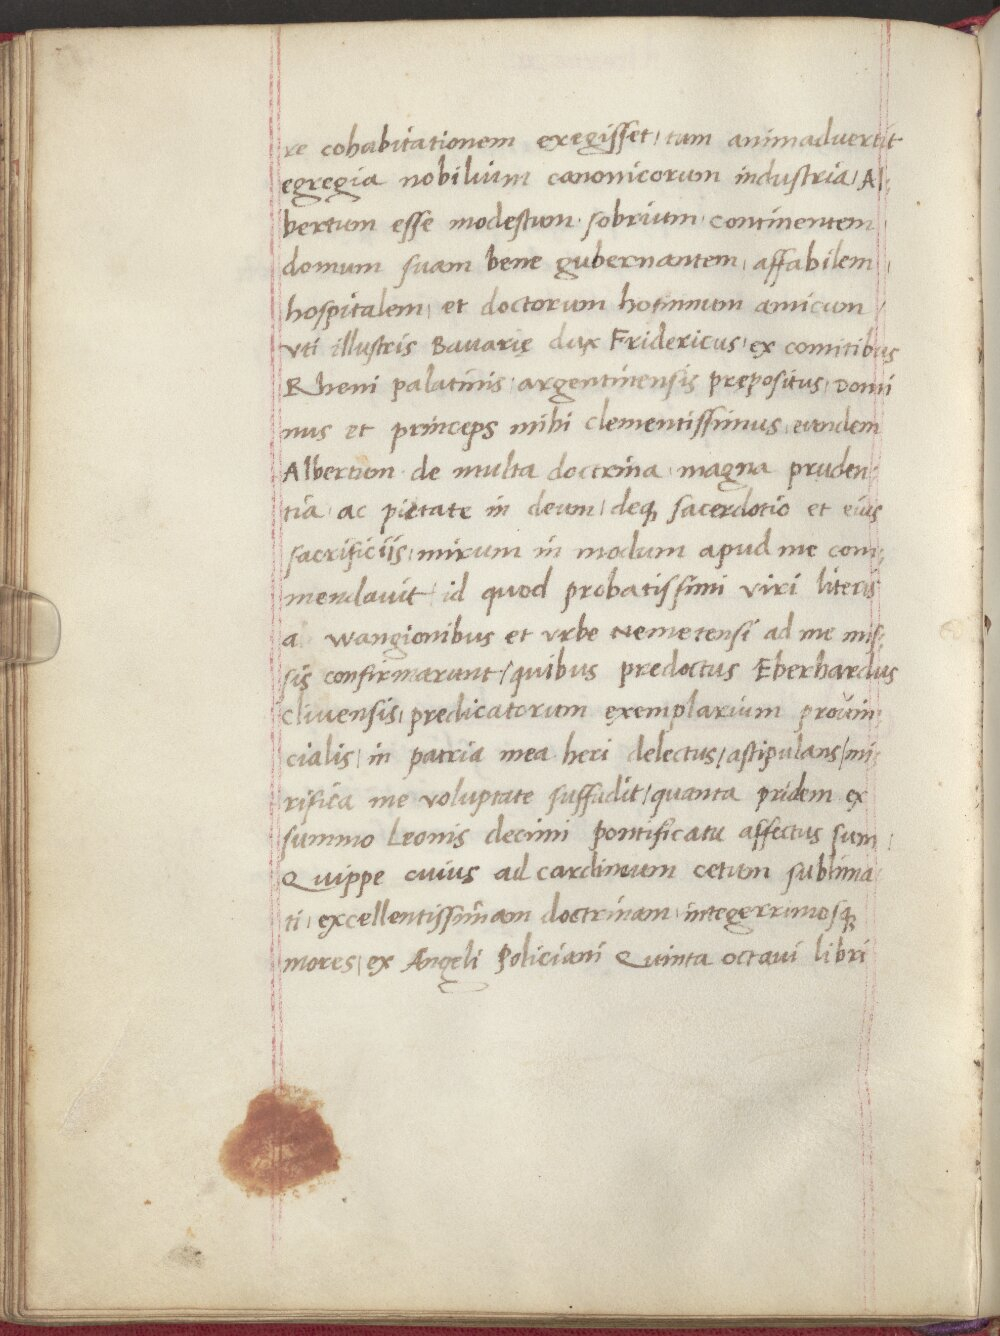 re cohabitationem exegisset / tum animaduertit
egregia nobilium canonicorum industria / Al-
bertum esse modestum · sobrium · continentem
domum suam bene gubernantem / affabilem /
hospitalem / et doctorum hominum amicum /
vti illustris Bauarię dux Fridericus / ex comitibus
Rheni palatinis / argentinensis prępositus / Domi
nus et princeps mihi clementissimus / eundem
Albertum · de multa doctrina / magna pruden-
tia / ac pietate in deum / deq; sacerdotio et eius
sacrificiis / mirum in modum apud me com-
mendauit / id quod probatissimi viri literis
a wangionibus et vrbe Nemetensi ad me mis-
sis confirmarunt / quibus predoctus Eberhardus
cliuensis / predicatorum exemplarium prouin-
cialis / in patria mea heri delectus / astipulans / mi-
rifica me voluptate suffudit / quanta pridem ex
summo Leonis decimi pontificatu affectus sum /
Quippe cuius ad cardinium cetum sublima-
ti / excellentissimam doctrinam / integerrimosq;
mores / ex Angeli Policiani Quinta octaui libri